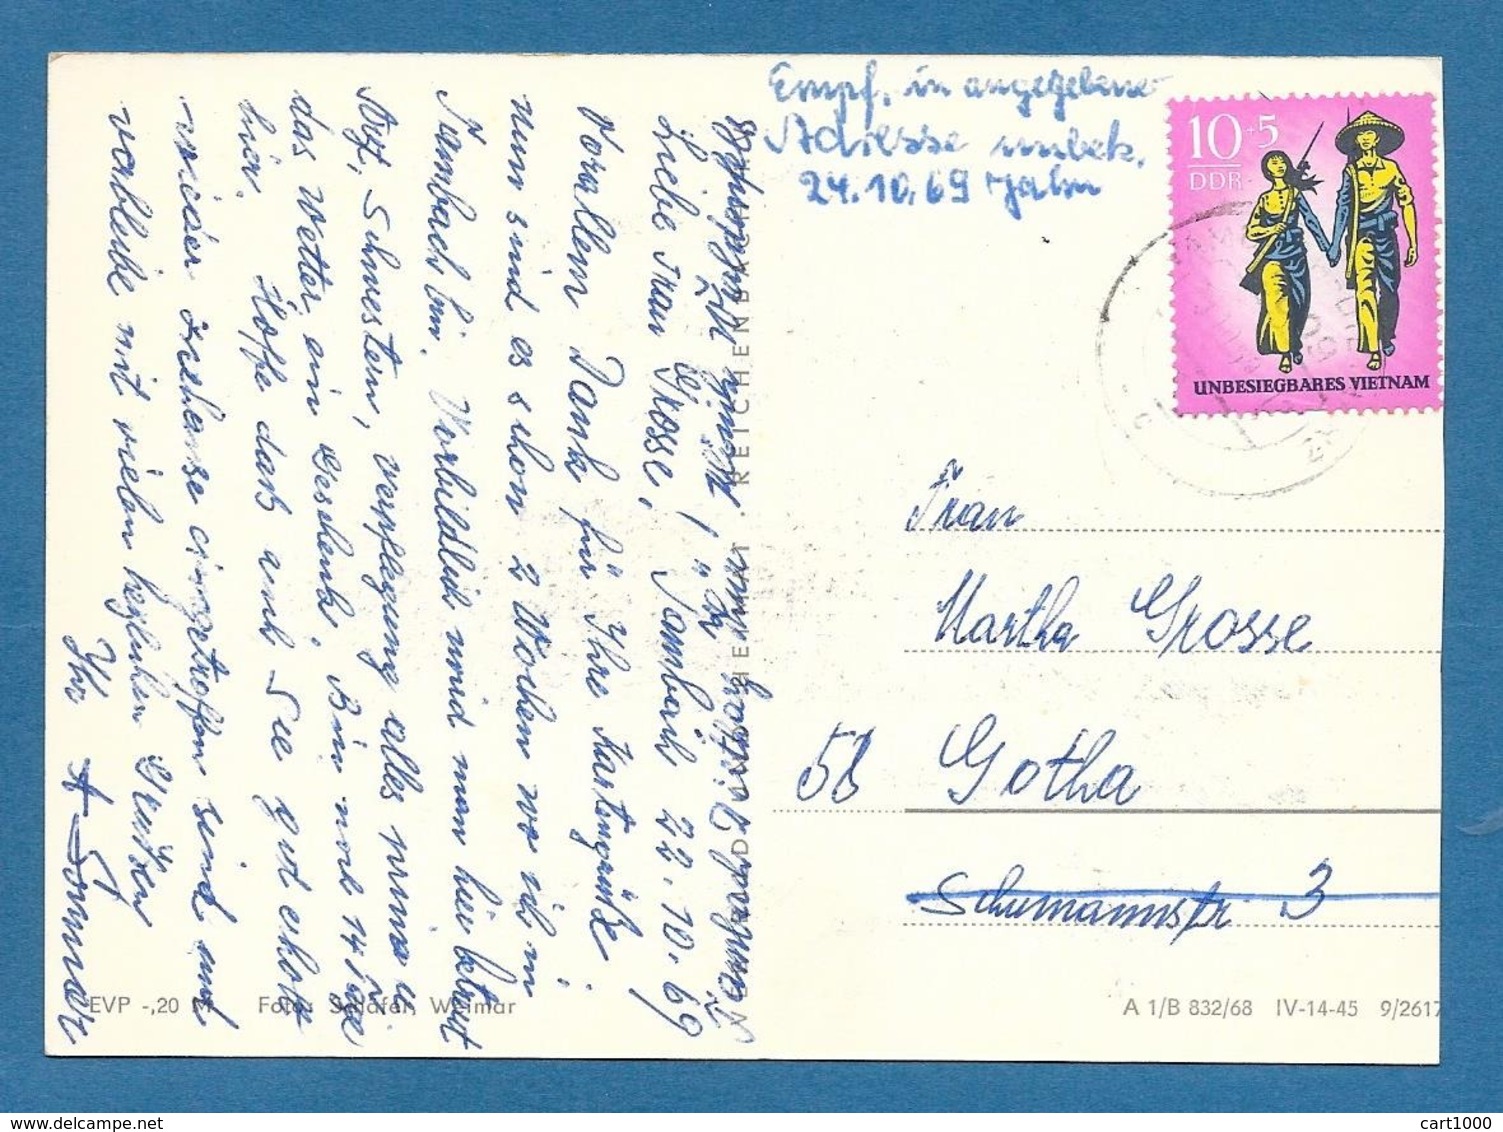 Liebe Frau Grosse, Tambach 22.10.69
Vorallem Dank für Ihre Kartengrüße.
nun sind es schon 2 Wochen wo ich in
Tambach bin. Vorbildlich wird man hier betreut
Arzt, Schwestern, verpflegung alles prima u.
das Wetter ein Geschenk. Bin noch 14 Tage
hier. Hoffe daß auch Sie gut erholt
wieder zuhause eingetroffen sind und
verbleibe mit vielen herzlichen Grüßen
Ihr
Sommer
Empf. in angegebener
Adresse unbek.
24.10.69 Jahn
10+5
DDR
UNBESIEGBARES VIETNAM
Frau
Martha Grosse
58 Gotha
Schumannstr. 3
REICHENBACH
EVP -,20 M Foto: Schäfer, Weimar
A 1/B 832/68 IV-14-45 9/2617
cart1000